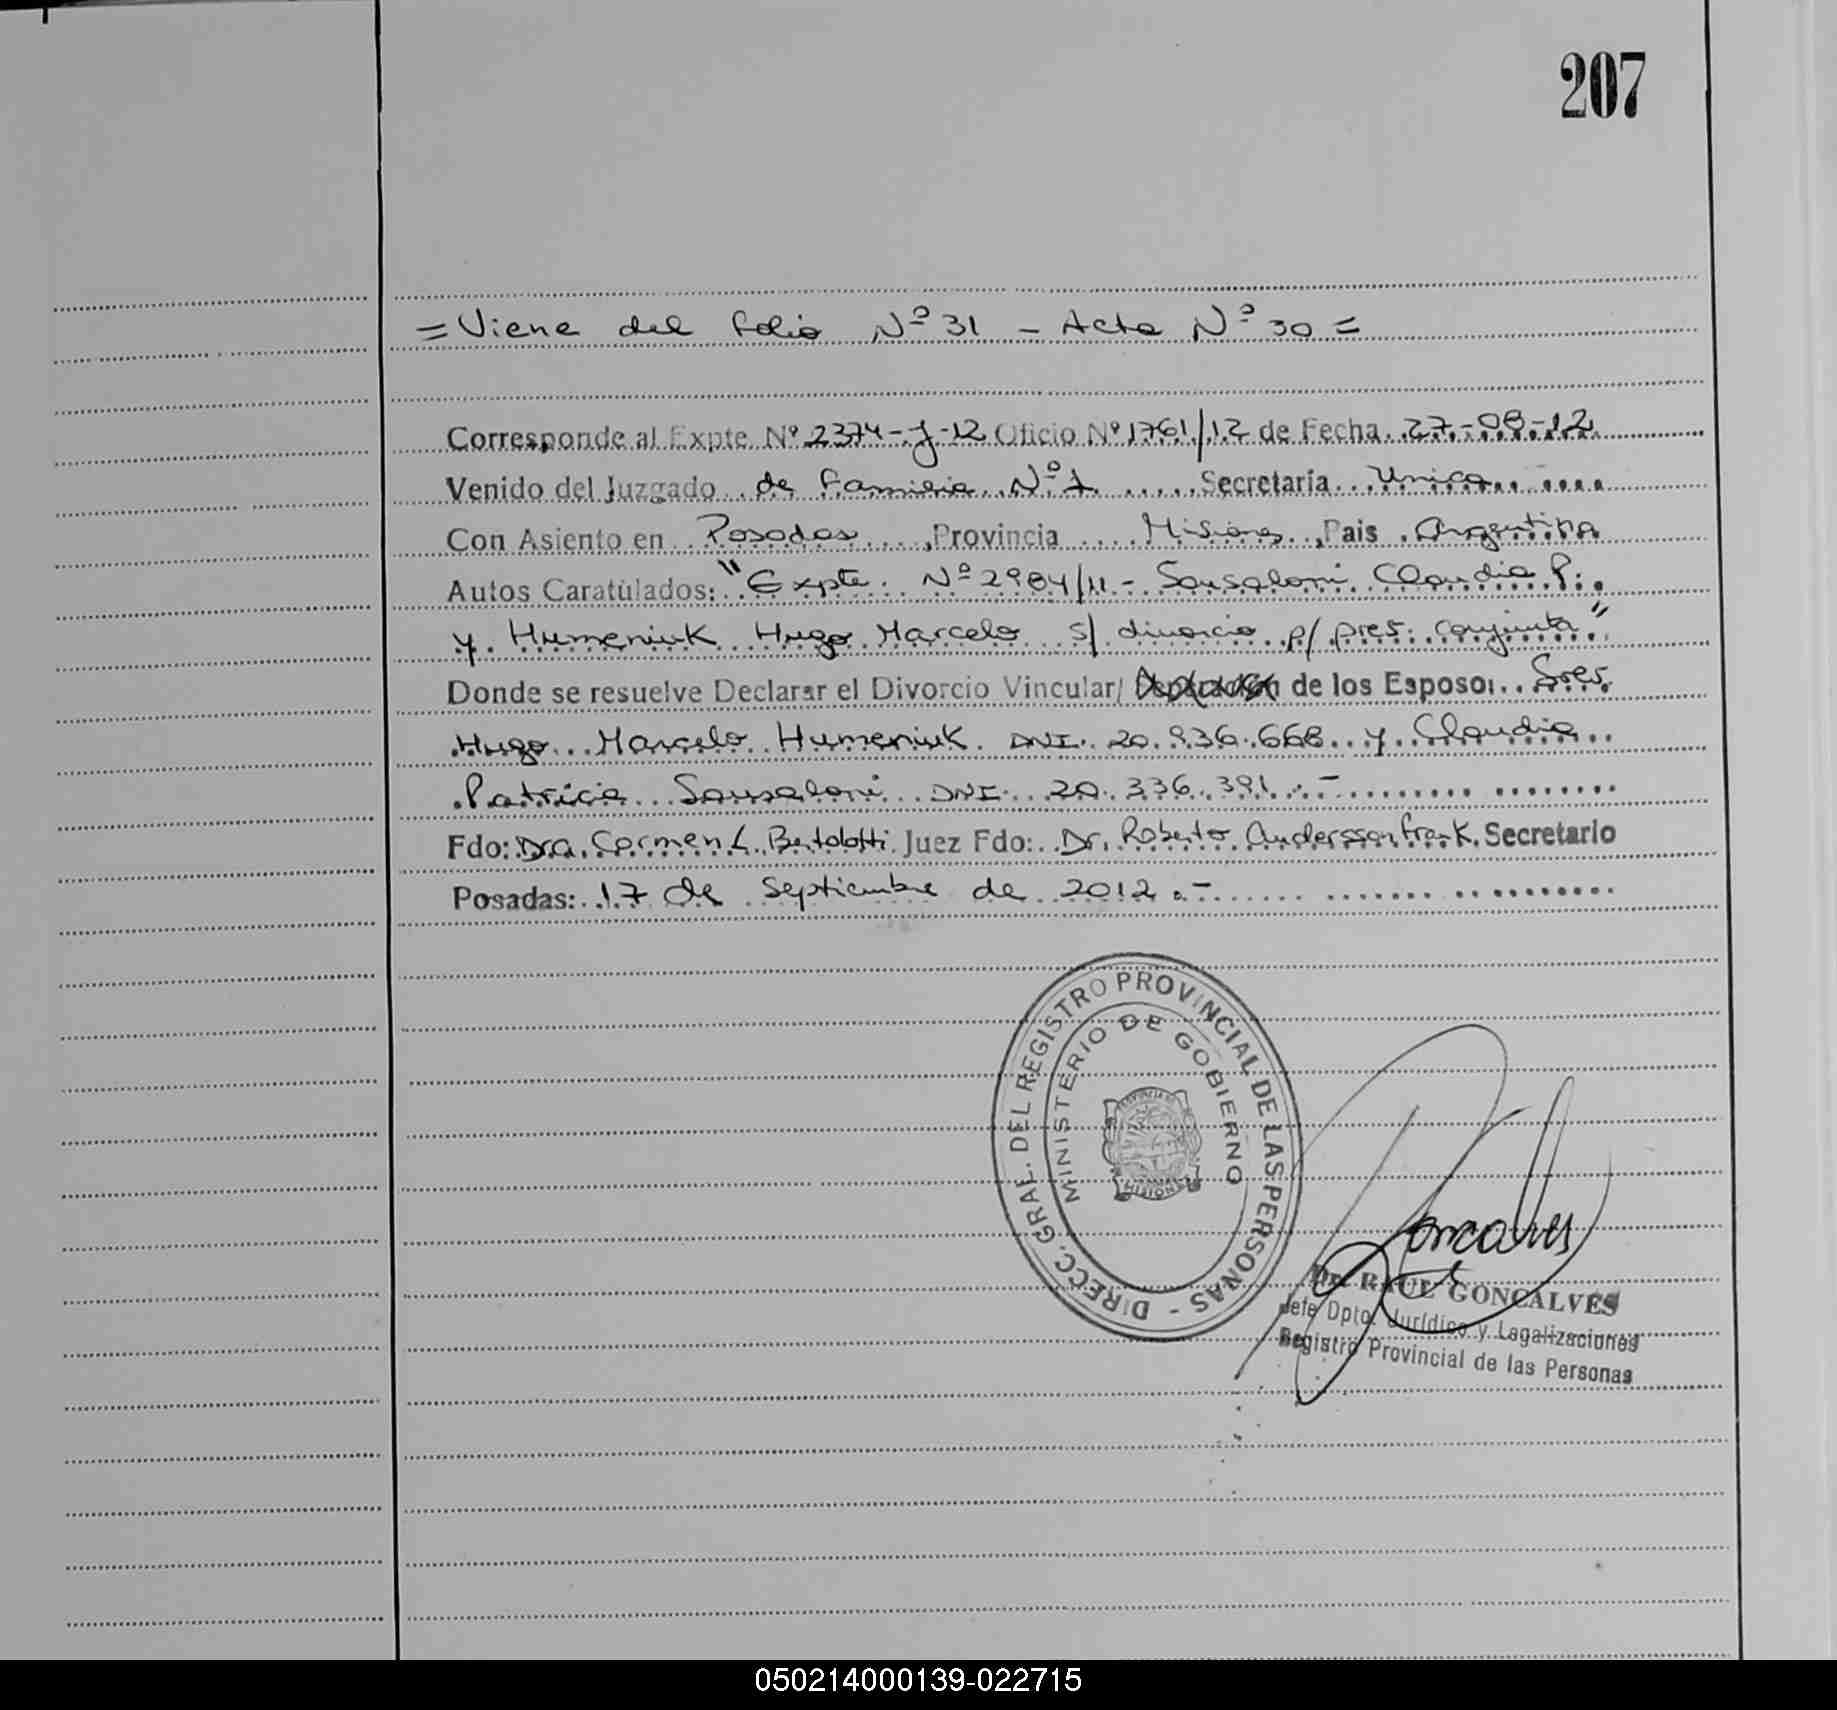 207
= Viene del folio Nº 31 - Acta Nº 30 =
Corresponde al Expte. Nº 2374-J-12 Oficio Nº 1761/12 de Fecha 27-08-12
Venido del Juzgado de Familia Nº 1 Secretaría Unica
Con Asiento en Posadas, Provincia Misiones, Pais Argentina
Autos Caratulados: "Expte. Nº 2984/11 - Sansaloni Claudia P.
y Humeniuk Hugo Marcelo s/ divorcio p/ pres. conjunta"
Donde se resuelve Declarar el Divorcio Vincular/ de los Esposos Sres.
Hugo Marcelo Humeniuk DNI 20.936.668 y Claudia
Patricia Sansaloni DNI 20.336.391.-
Fdo: Dra. Carmen L. Bertolotti Juez Fdo: Dr. Roberto Andersson Frank. Secretario
Posadas: 17 de Septiembre de 2012.-
DIRECC. GRAL. DEL REGISTRO PROVINCIAL DE LAS PERSONAS -
MINISTERIO DE GOBIERNO
MISIONES
Goncalves
Dr. RAUL GONCALVES
Jefe Dpto. Jurídico y Legalizaciones
Registro Provincial de las Personas
050214000139-022715